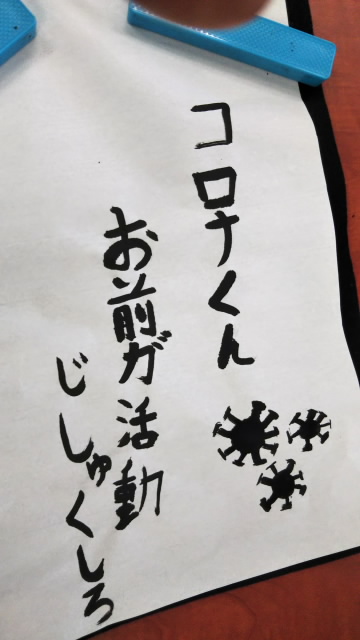 コロナくん
お前が活動
じしゅくしろ